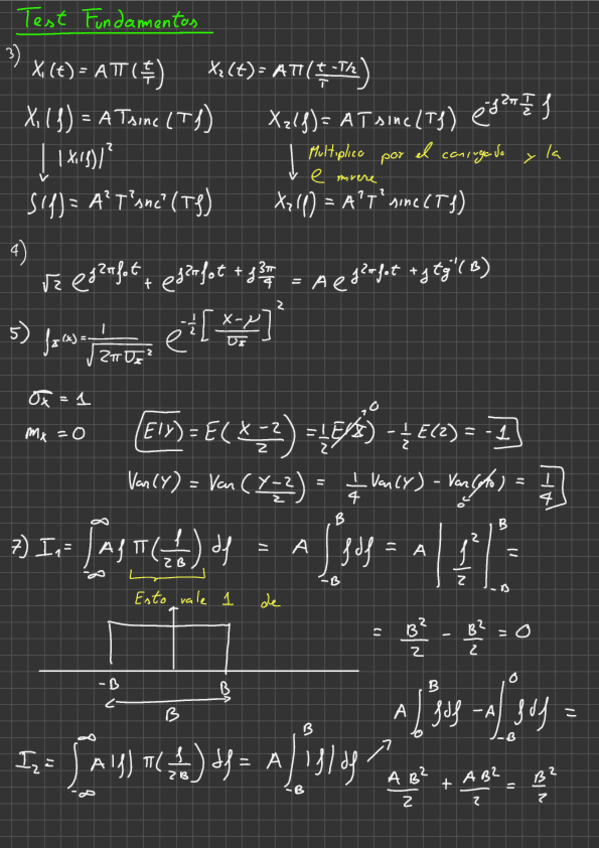 Test Fundamentos
3) X₁(t) = AΠ(t/T)    X₂(t) = AΠ((t-T/2)/T)
X₁(f) = ATsinc(Tf)    X₂(f) = ATsinc(Tf) e^(-j2π T/2 f)
↓ |X₁(f)|²    ↓ Multiplico por el conjugado y la
e muere
S(f) = A²T²sinc²(Tf)    X₂(f) = A²T² sinc(Tf)
4)
√2 e^(j2πf₀t) + e^(j2πf₀t + j3π/4) = A e^(j2πf₀t + j tg⁻¹(B))
5) fₓ(x) = 1/√(2πσₓ²) e^(-1/2 [(x-μ)/σₓ]²)
σₓ = 1
mₓ = 0    E(Y) = E((X-2)/2) = 1/2 E(X) - 1/2 E(2) = -1
0
Var(Y) = Var((Y-2)/2) = 1/4 Var(Y) - = 1/4
0
7) I₁ = ∫_-∞^∞ Af Π(f/2B) df = A ∫_-B^B fdf = A | f²/2 |_-B^B =
Esto vale 1 de
= B²/2 - B²/2 = 0
-B    B
B
A ∫_0^B fdf - A ∫_-B^0 fdf =
I₂ = ∫_-∞^∞ A|f| Π(f/2B) df = A ∫_-B^B |f| df ↗
AB²/2 + AB²/2 = B²/2